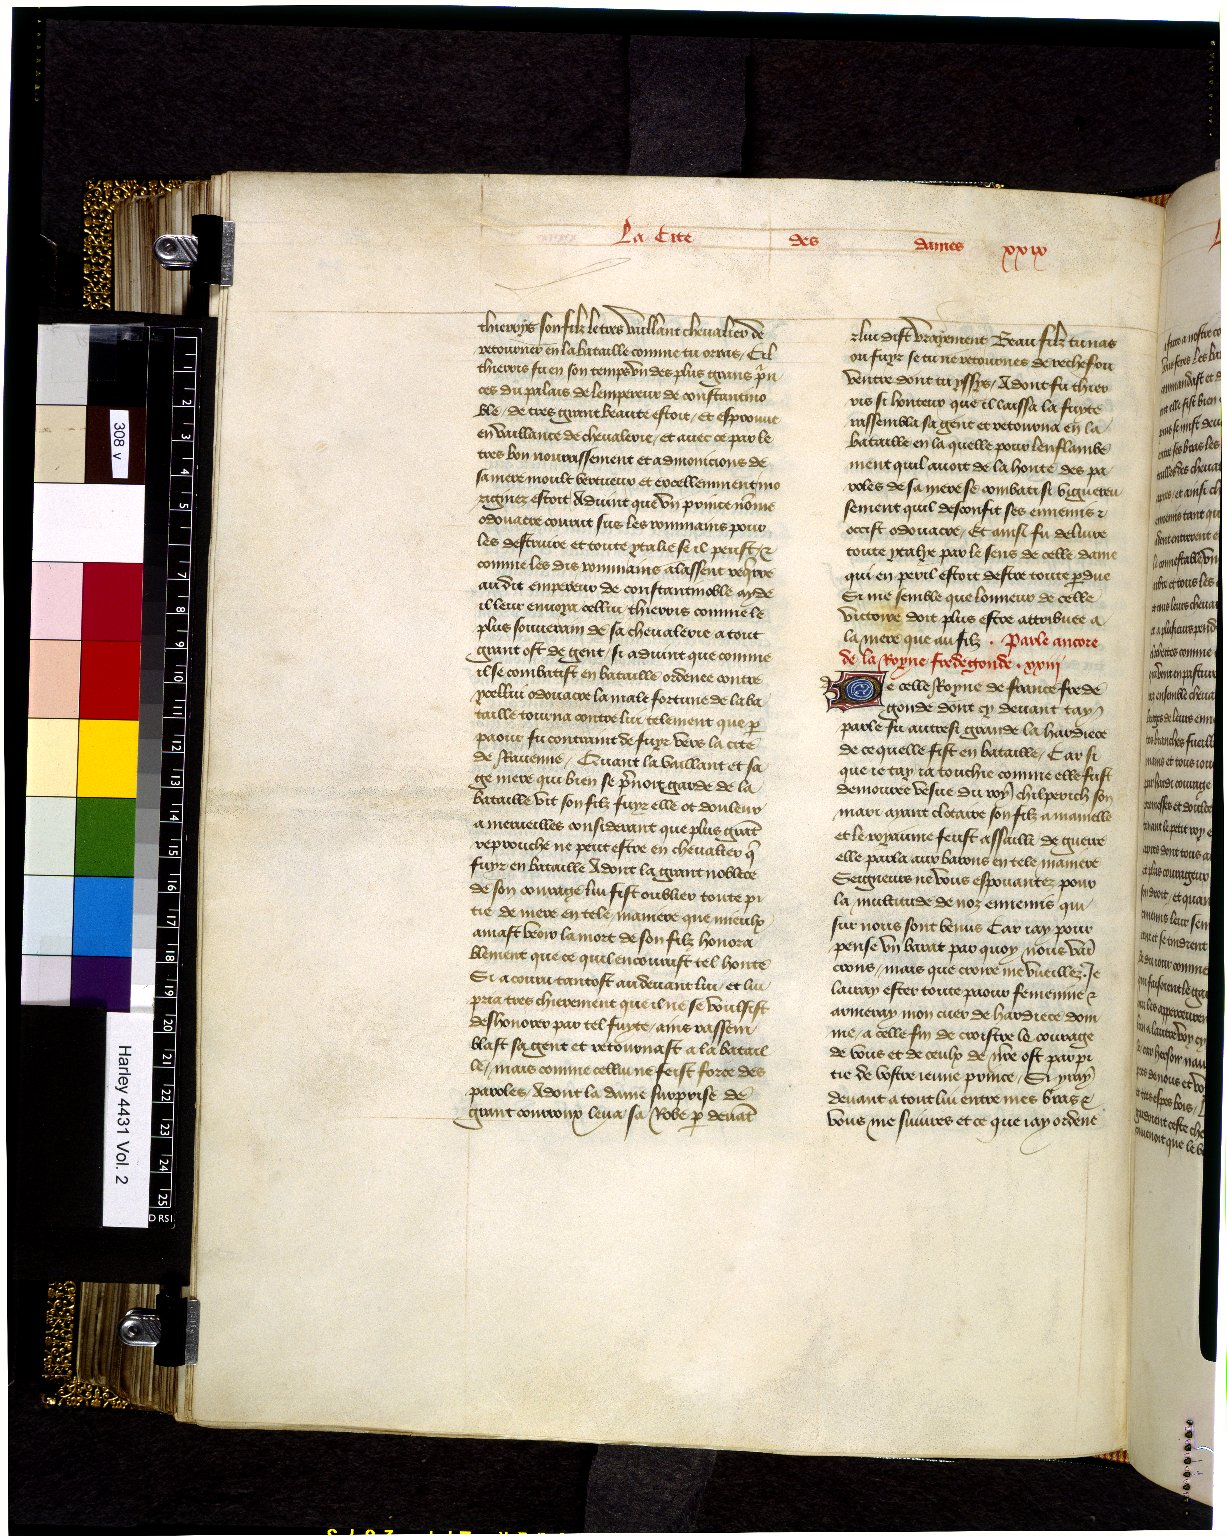 La Cite des dames xxix
thierris son filz le tres vaillant chevalier de
retourner en la bataille comme tu orras / Cil
thierris fu en son temps vn des plus grans p̃n
ces du palais de lempereur de constantino
ble / de tres grant beaute estoit / et esprouue
en vaillance de chevalerie / et auec ce par le
tres bon nourrissement et admonicions de
sa mere moult vertueux et excellemment mo
riginez estoit Aduint que vn prince nõme
odouacre courut sus les rommains pour
les destruire et toute ytalie se il peust / ⁊
comme les dis rommains alassent req̃rre
au dit empereur de constantinoble ayde
il leur enuoya cellui thierris comme le
plus souuerain de sa cheualerie a tout
grant ost de gent / si aduint que comme
il se combatist en bataille ordenee contre
ycellui odouacre la male fortune de la ba
taille tourna contre lui telement que p̱
paour fu contraint de fuyr vers la cite
de Rauenne / Quant la vaillant et sa
ge mere qui bien se p̃noit garde de la
bataille vit son filz fuyr elle ot douleur
a merueilles considerant que plus grãt
reprouche ne peut estre en cheualier q̃
fuyr en bataille Adont la grant noblece
de son courage lui fist oublier toute pi
tie de mere en tele maniere que mieulx
amast veoir la mort de son filz honora
blement que ce quil encourust tel honte
Si a couru tantost au deuant lui / et lui
pria tres chierement que il ne se voulsist
deshonorer par tel fuyte / ains rassem
blast sa gent et retournast a la batail
le / mais comme cellui ne feist force des
paroles / Adont la dame surprise de
grant courroux leua sa Robe p̱ deuãt
⁊ lui dist vrayement Beau filz tu nas
ou fuyr se tu ne retournes de rechef ou
ventre dont tu yssys / Adont fu thier
ris si honteux que il laissa la fuyte
rassembla sa gent et retourna en la
bataille en la quelle pour lenflambe
ment quil auoit de la honte des pa
roles de sa mere se combati si vigureu
sement quil desconfit ses ennemis ⁊
occist odouacre / Et ainsi fu deliure
toute ytalye par le sens de celle dame
qui en peril estoit destre toute p̱due
Si me semble que lonneur de celle
victoire doit plus estre attribuee a
la mere que au filz . Parle ancore
de la Royne fredegonde . xxiii
De celle Royne de france frede
gonde dont cy deuant tay
parle fu autresi grande la hardiece
de ce quelle fist en bataille / Car si
que ie tay ia touchie comme elle fust
demouree vefue du roy chilperich son
mari ayant clotaire son filz a mamelle
et le royaume feust assailli de guerre
elle parla aux barons en tele maniere
Seigneurs ne vous espouantez pour
la multitude de noz ennemis qui
sur nous sont venus Car iay pour
pense vn barat par quoy nous vai͂
crons / mais que croire me vueillez . Je
lairay ester toute paour femenine ⁊
armeray mon cuer de hardiece dom
me / a celle fin de croistre le courage
de vous et de ceulx de n̄re ost par pi
tie de vostre ieune prince / Si yray
deuant a tout lui entre mes bras ⁊
vous me suiures et ce que iay ordene
308 v
Harley 4431 Vol. 2